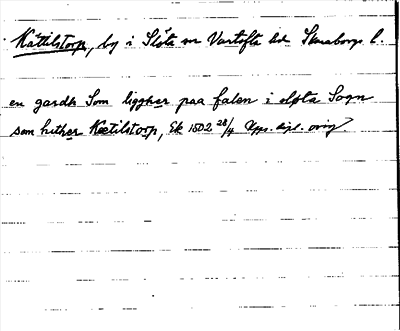 Kättilstorp, by i Slöta sn Vartofta hd Skaraborgs l.
en gardh Som liggher paa falen i sløta Sogn
som hether Kætilstorp, Sk 1502 28/4 Kps. dipl. orig